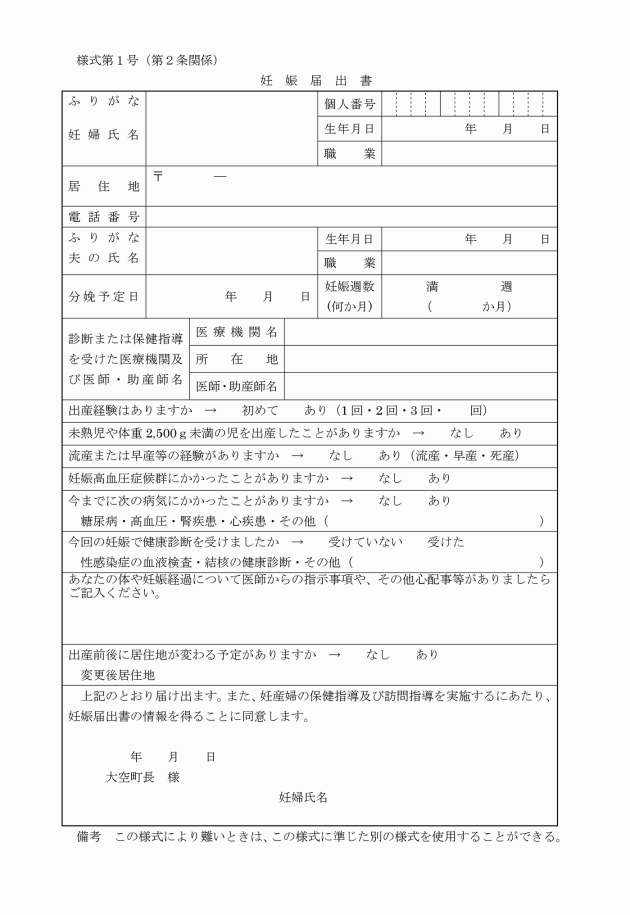 様式第１号（第２条関係）
妊娠届出書
ふりがな
妊婦氏名
個人番号
生年月日
年　月　日
職業
居住地
〒　―
電話番号
ふりがな
夫の氏名
生年月日
年　月　日
職業
分娩予定日
年　月　日
妊娠週数
（何か月）
満　週
（　か月）
診断または保健指導
を受けた医療機関及
び医師・助産師名
医療機関名
所在地
医師・助産師名
出産経験はありますか　→　初めて　あり（1回・2回・3回・　回）
未熟児や体重2,500ｇ未満の児を出産したことがありますか　→　なし　あり
流産または早産等の経験がありますか　→　なし　あり（流産・早産・死産）
妊娠高血圧症候群にかかったことがありますか　→　なし　あり
今までに次の病気にかかったことがありますか　→　なし　あり
糖尿病・高血圧・腎疾患・心疾患・その他（　）
今回の妊娠で健康診断を受けましたか　→　受けていない　受けた
性感染症の血液検査・結核の健康診断・その他（　）
あなたの体や妊娠経過について医師からの指示事項や、その他心配事等がありましたら
ご記入ください。
出産前後に居住地が変わる予定がありますか　→　なし　あり
変更後居住地
上記のとおり届け出ます。また、妊産婦の保健指導及び訪問指導を実施するにあたり、
妊娠届出書の情報を得ることに同意します。
年　月　日
大空町長　様
妊婦氏名
備考　この様式により難いときは、この様式に準じた別の様式を使用することができる。